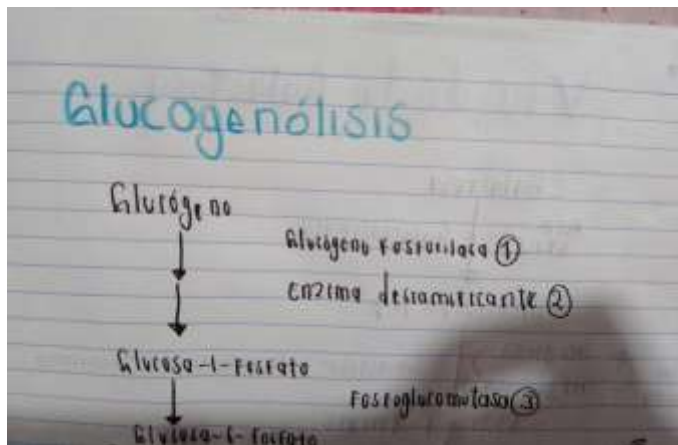 Glucogenólisis
Glucógeno
Glucógeno Fosforilasa ①
enzima desramificante ②
Glucosa-1-Fosfato
Fosfoglucomutasa ③
Glucosa-6-Fosfato